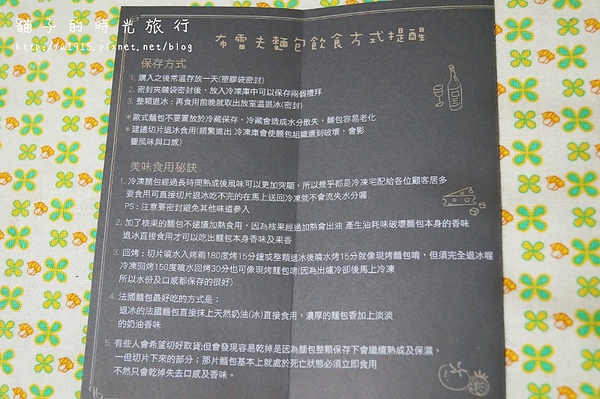 貓子的時光旅行
http://u1915.pixnet.net/blog
布雷夫麵包飲食方式提醒
保存方式
1. 購入之後常溫存放一天(塑膠袋密封)
2. 密封夾鏈袋密封後，放入冷凍庫中可以保存兩個禮拜
3. 整顆退冰：再食用前晚就取出放室溫退冰(密封)
＊歐式麵包不要置放於冷藏保存，冷藏會造成水分散失，麵包容易老化
＊建議切片退冰食用(頻繁進出 冷凍庫會使麵包組織遭到破壞，會影
響風味與口感)
美味食用秘訣
1. 冷凍麵包經過長時間熟成後風味可以更加突顯，所以幾乎都是冷凍宅配給各位顧客居多
要食用可直接切片退冰吃不完的在馬上送回冷凍就不會流失水分喔
PS：注意要密封避免其他味道參入
2. 加了核果的麵包不建議加熱食用，因為核果經過加熱會出油 產生油耗味破壞麵包本身的香味
退冰直接食用才可以吃出麵包本身香味及果香
3. 回烤：切片噴水入烤箱180度烤15分鐘或整顆退冰後噴水烤15分就像現烤麵包唷，但須完全退冰喔
冷凍回烤150度噴水回烤30分也可像現烤麵包唷(因為出爐冷卻後馬上冷凍
所以水份及口感都保存的很好)
4. 法國麵包最好吃的方式是：
退冰的法國麵包直接抹上天然奶油(冰)直接食用，濃厚的麵包香加上淡淡
的奶油香味
5. 有些人會希望切好取貨;但會發現容易乾掉是因為麵包整顆保存下會繼續熟成及保濕，
一但切片下來的部分；那片麵包基本上就處於死亡狀態必須立即食用
不然只會乾掉失去口感及香味。